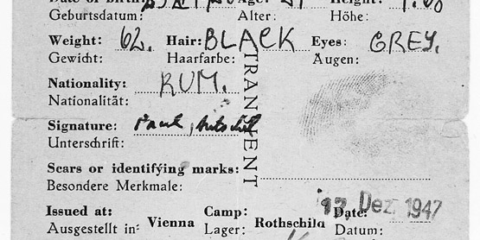 Date of birth: Age: Height:
Geburtsdatum: Alter: Höhe:
Weight: 62. Hair: BLACK Eyes: GREY.
Gewicht: Haarfarbe: Augen:
Nationality: RUM.
Nationalität:
TRANSIENT
Signature: Paul
Unterschrift:
Scars or identifying marks:
Besondere Merkmale:
Issued at: Vienna Camp: Rothschild Date: 13 Dez. 1947
Ausgestellt in: Lager: Datum: